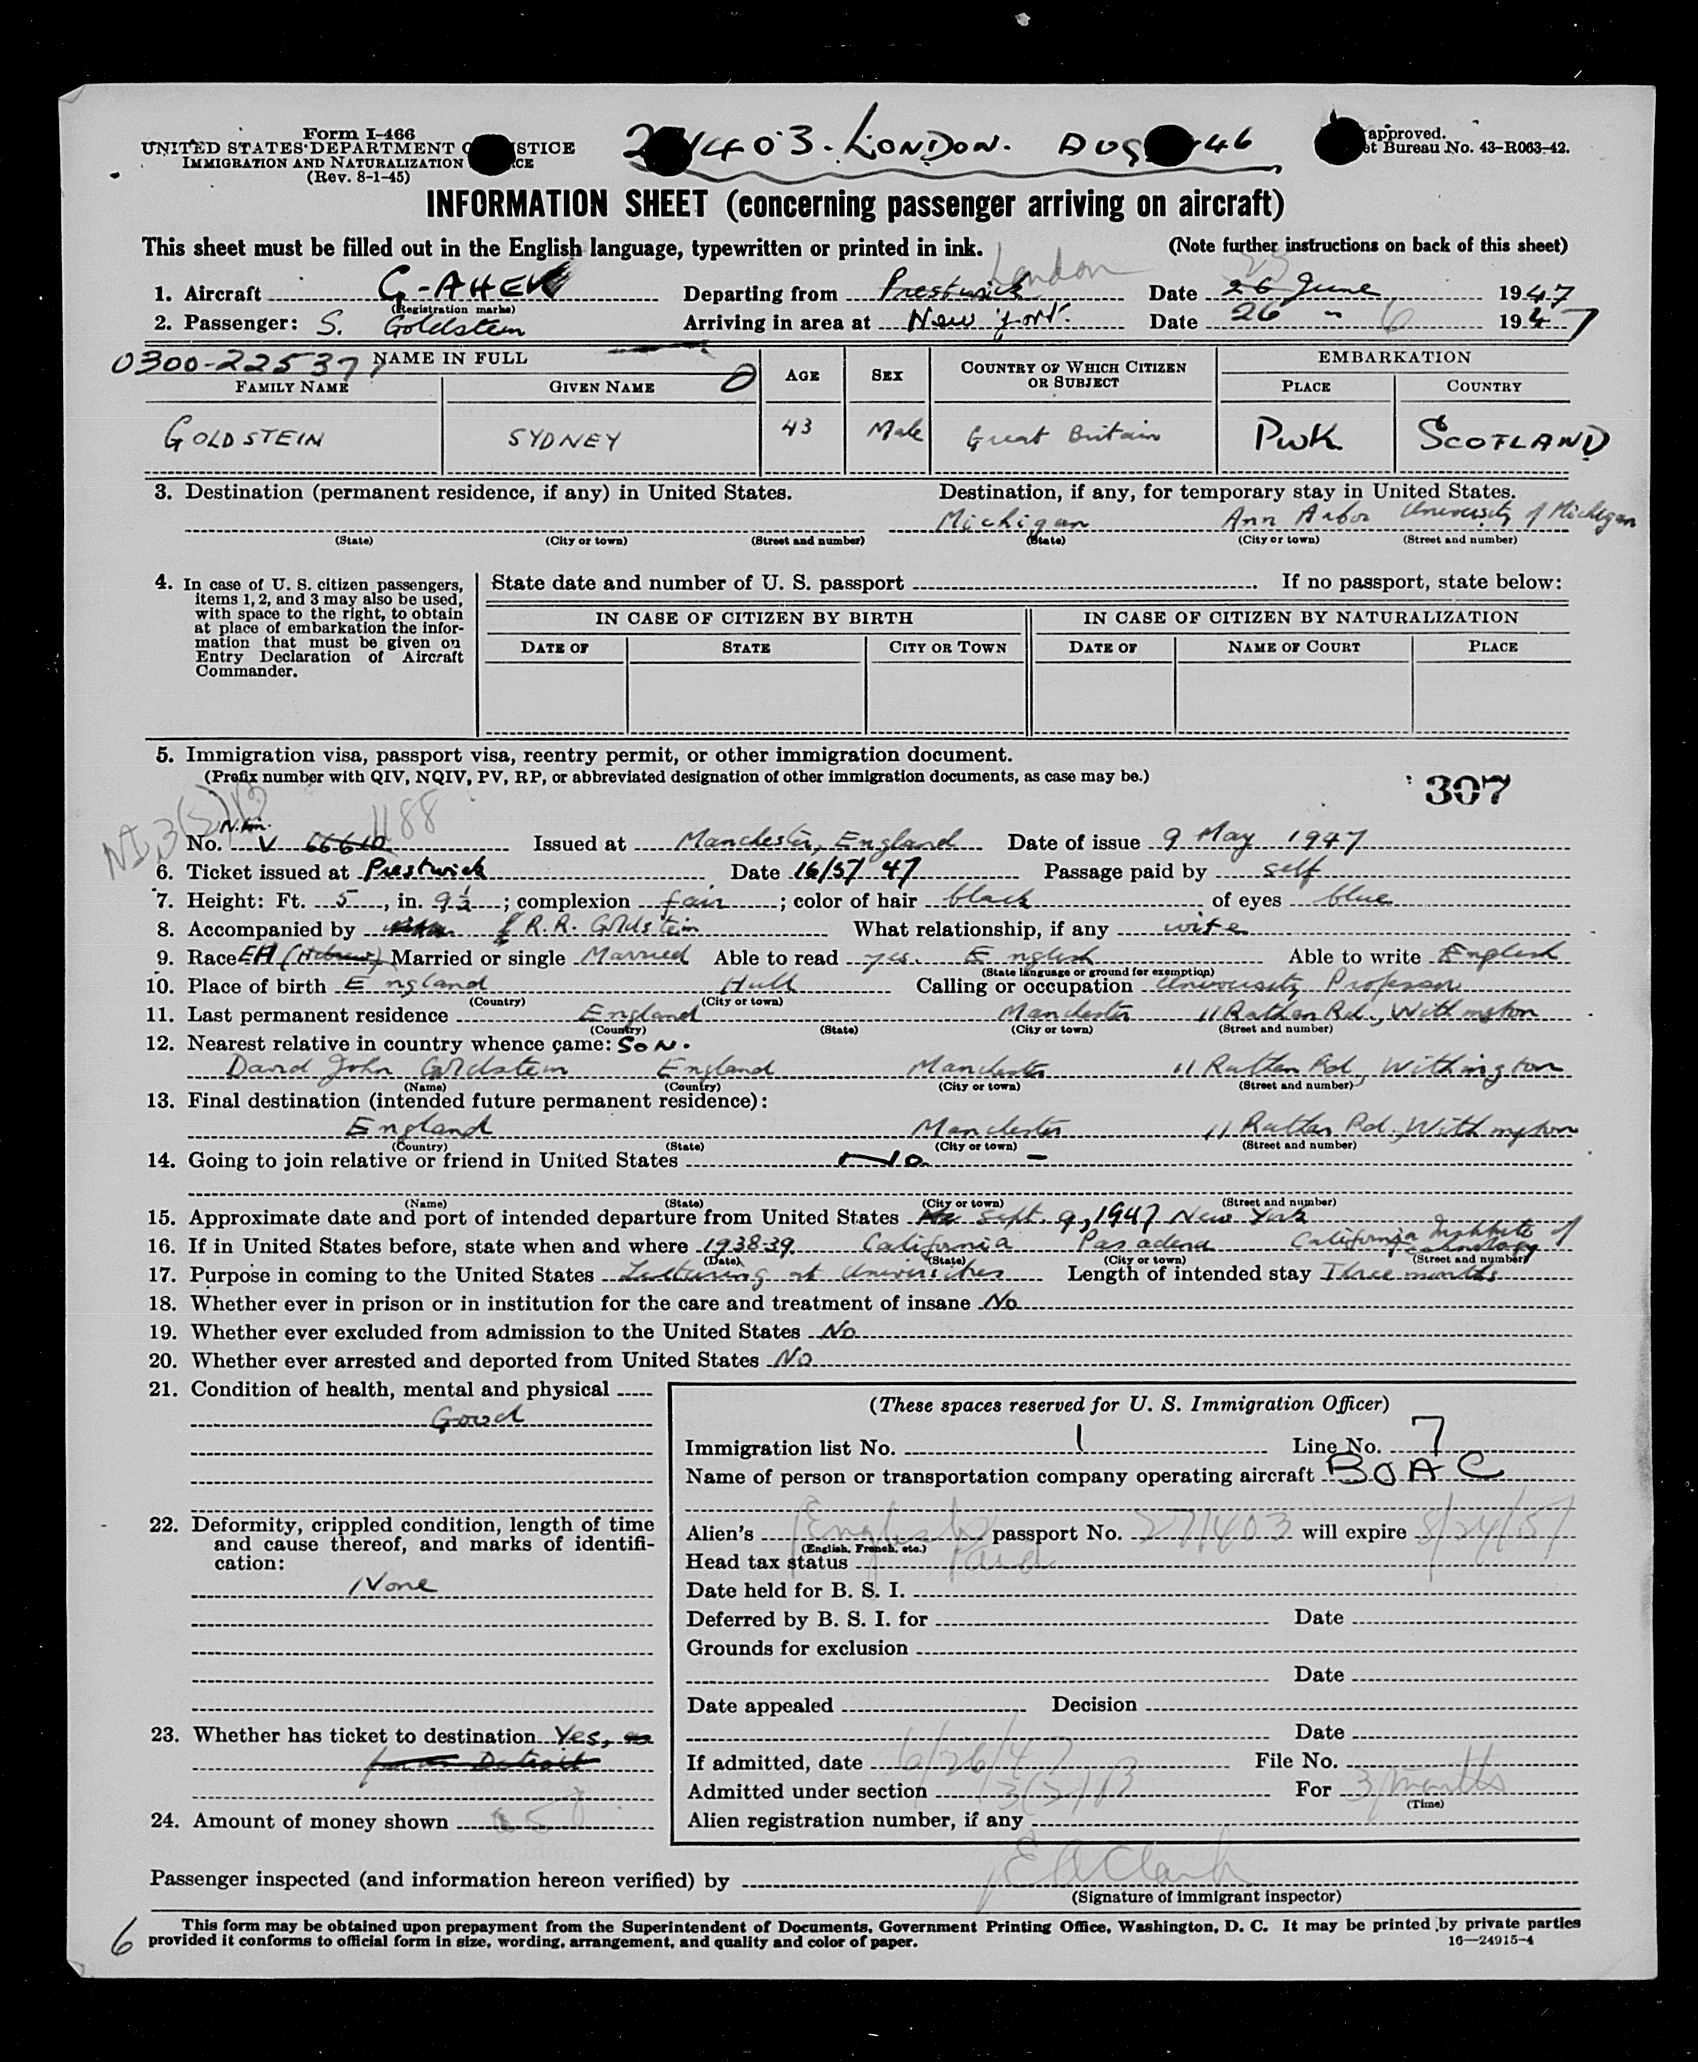 Form I-466
UNITED STATES DEPARTMENT STICE
IMMIGRATION AND NATURALIZATION CE
(Rev. 8-1-45)
1403. LONDON. AUG 46
approved.
et Bureau No. 43-R063-42.
INFORMATION SHEET (concerning passenger arriving on aircraft)
This sheet must be filled out in the English language, typewritten or printed in ink. (Note further instructions on back of this sheet)
London 25
1. Aircraft G-AHEK Departing from Prestwick Date 26 June 1947
(Registration marks)
2. Passenger: S. Goldstein Arriving in area at New York. Date 26 " 6 1947
0300-22537 NAME IN FULL AGE SEX COUNTRY OF WHICH CITIZEN OR SUBJECT EMBARKATION
FAMILY NAME GIVEN NAME PLACE COUNTRY
GOLDSTEIN SYDNEY 43 Male Great Britain PWK SCOTLAND
3. Destination (permanent residence, if any) in United States. Destination, if any, for temporary stay in United States.
Michigan Ann Arbor University of Michigan
(State) (City or town) (Street and number) (State) (City or town) (Street and number)
4. In case of U. S. citizen passengers, items 1, 2, and 3 may also be used, with space to the right, to obtain at place of embarkation the information that must be given on Entry Declaration of Aircraft Commander.
State date and number of U. S. passport If no passport, state below:
IN CASE OF CITIZEN BY BIRTH IN CASE OF CITIZEN BY NATURALIZATION
DATE OF STATE CITY OR TOWN DATE OF NAME OF COURT PLACE
5. Immigration visa, passport visa, reentry permit, or other immigration document.
(Prefix number with QIV, NQIV, PV, RP, or abbreviated designation of other immigration documents, as case may be.)
307
1188
No. V 66610 Issued at Manchester, England Date of issue 9 May 1947
6. Ticket issued at Prestwick Date 16/5/47 Passage paid by self
7. Height: Ft. 5, in. 9½; complexion fair; color of hair black of eyes blue
8. Accompanied by R.R. Goldstein What relationship, if any wife
9. Race EH (Hebrew) Married or single Married Able to read yes. English Able to write English
(State language or ground for exemption)
10. Place of birth England Hull Calling or occupation University Professor
(Country) (City or town)
11. Last permanent residence England Manchester 11 Rathen Rd., Withington
(Country) (State) (City or town) (Street and number)
12. Nearest relative in country whence came: SON.
David John Goldstein England Manchester 11 Rathen Rd, Withington
(Name) (Country) (City or town) (Street and number)
13. Final destination (intended future permanent residence):
England Manchester 11 Rathen Rd., Withington
(Country) (State) (City or town) (Street and number)
14. Going to join relative or friend in United States No -
(Name) (State) (City or town) (Street and number)
15. Approximate date and port of intended departure from United States Sept. 9, 1947 New York
16. If in United States before, state when and where 1938-39 California Pasadena California Institute of Technology
(Date) (State) (City or town) (Street and number)
17. Purpose in coming to the United States Lecturing at Universities Length of intended stay Three months
18. Whether ever in prison or in institution for the care and treatment of insane No
19. Whether ever excluded from admission to the United States No
20. Whether ever arrested and deported from United States No
21. Condition of health, mental and physical
Good
22. Deformity, crippled condition, length of time and cause thereof, and marks of identification:
None
23. Whether has ticket to destination Yes, as
far as Detroit
24. Amount of money shown
(These spaces reserved for U. S. Immigration Officer)
Immigration list No. 1 Line No. 7
Name of person or transportation company operating aircraft BOAC
Alien's English passport No. 271403 will expire 8/24/51
(English, French, etc.)
Head tax status Paid
Date held for B. S. I.
Deferred by B. S. I. for Date
Grounds for exclusion
Date
Date appealed Decision
Date
If admitted, date 6/26/47 File No.
Admitted under section 3(2)B For 3 months
(Time)
Alien registration number, if any
Passenger inspected (and information hereon verified) by E A Clark
(Signature of immigrant inspector)
This form may be obtained upon prepayment from the Superintendent of Documents, Government Printing Office, Washington, D. C. It may be printed by private parties
6 provided it conforms to official form in size, wording, arrangement, and quality and color of paper.
16—24915-4